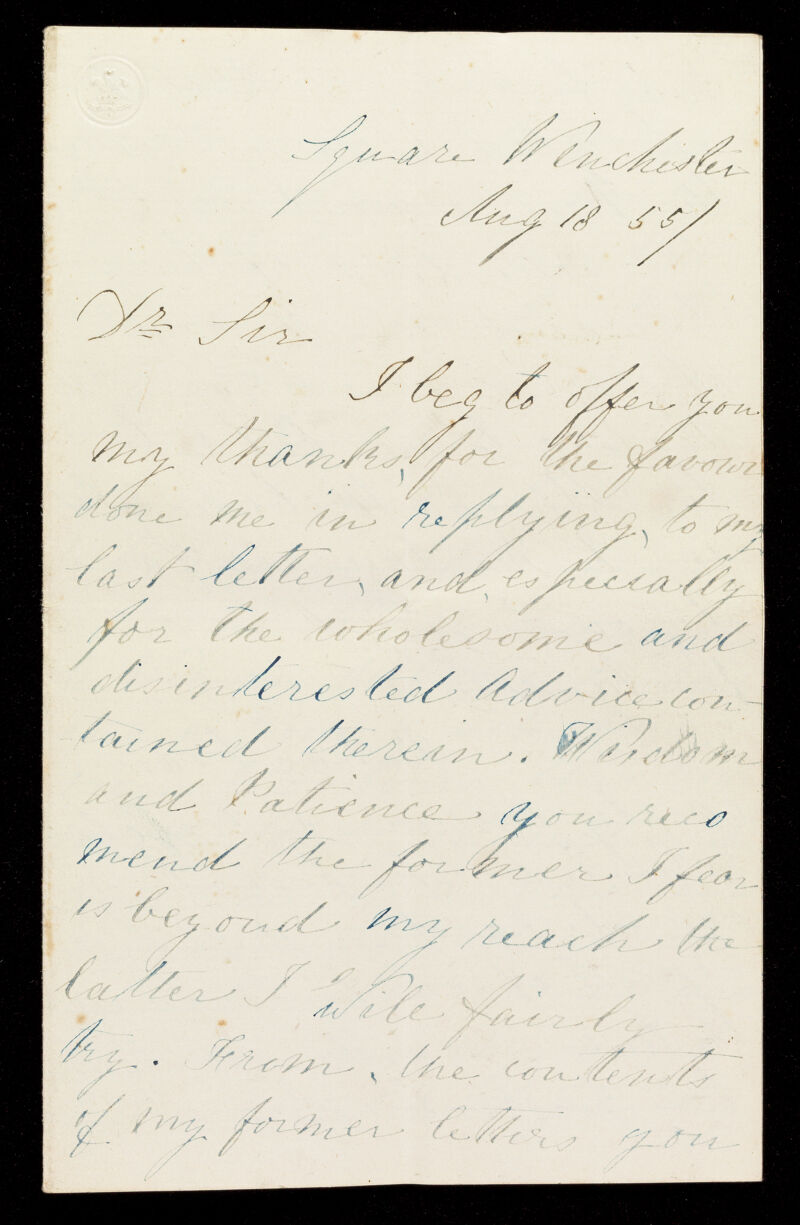 Square Winchester
Aug 18 55/
Dr Sir
I beg to offer you
my thanks, for the favour
done me in replyiing, to my
last letter, and, especially
for the wholesome and
disinterested advice con-
tained therein. Wisdom
and Patience you reco
mend the former I fear
is beyond my reach the
latter I Will fairly
try. From, the contents
of my former letters you